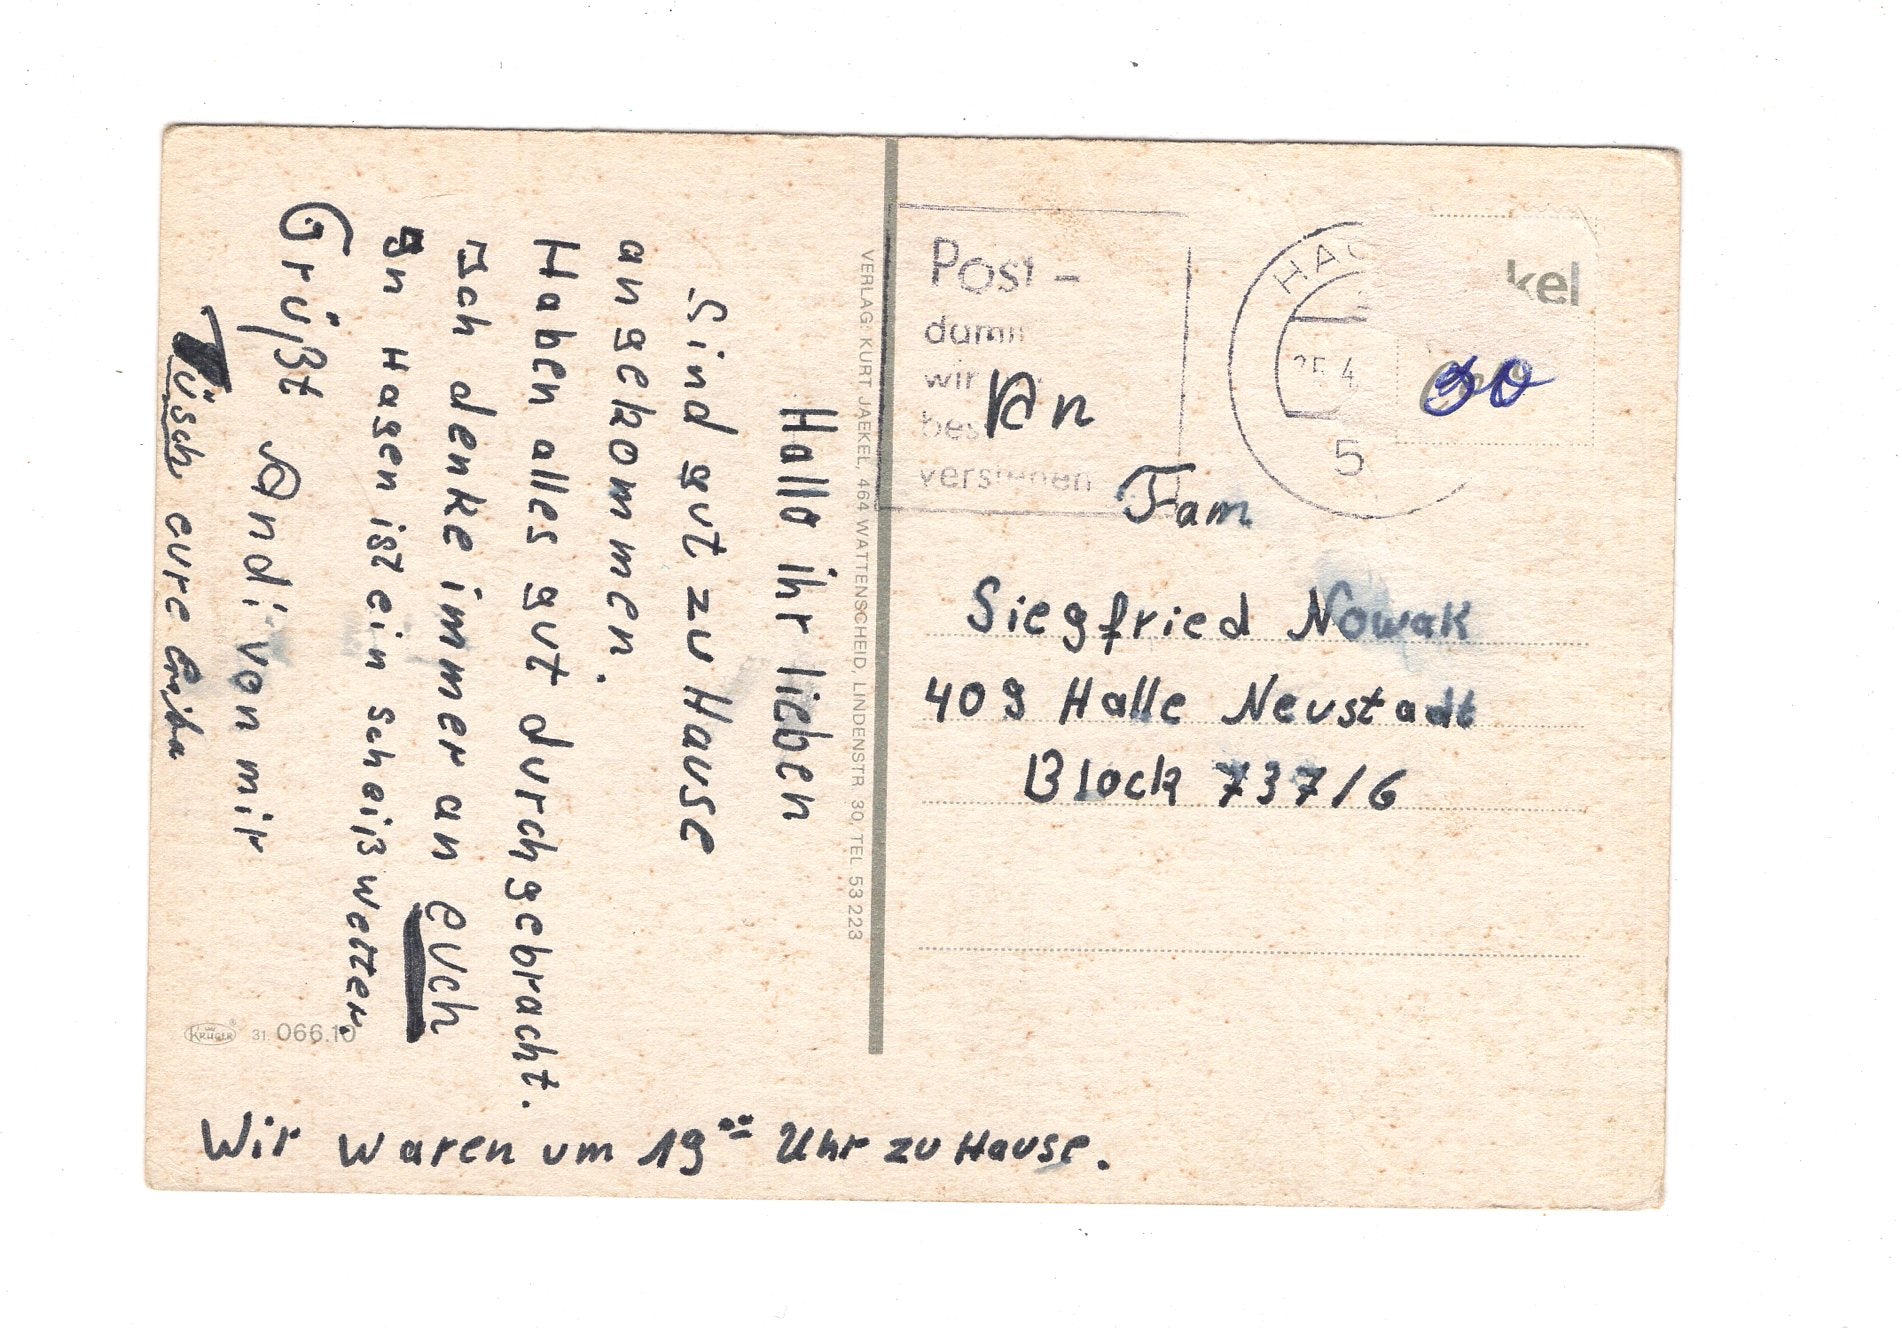 Hallo ihr lieben
Sind gut zu Hause
angekommen.
Haben alles gut durchgebracht.
Ich denke immer an euch
In Hagen ist ein scheiß wetter.
Grüßt Andi von mir
Tüsch eure
Wir waren um 19⁰⁰ Uhr zu Hause.
VERLAG: KURT JAEKEL, 464 WATTENSCHEID, LINDENSTR 30, TEL 53 223
KRÜGER® 31. 066.10
Post -
damit
wir
verstehen
HAG
25. 4.
5
kel
30
An
Fam
Siegfried Nowak
409 Halle Neustadt
Block 737/6